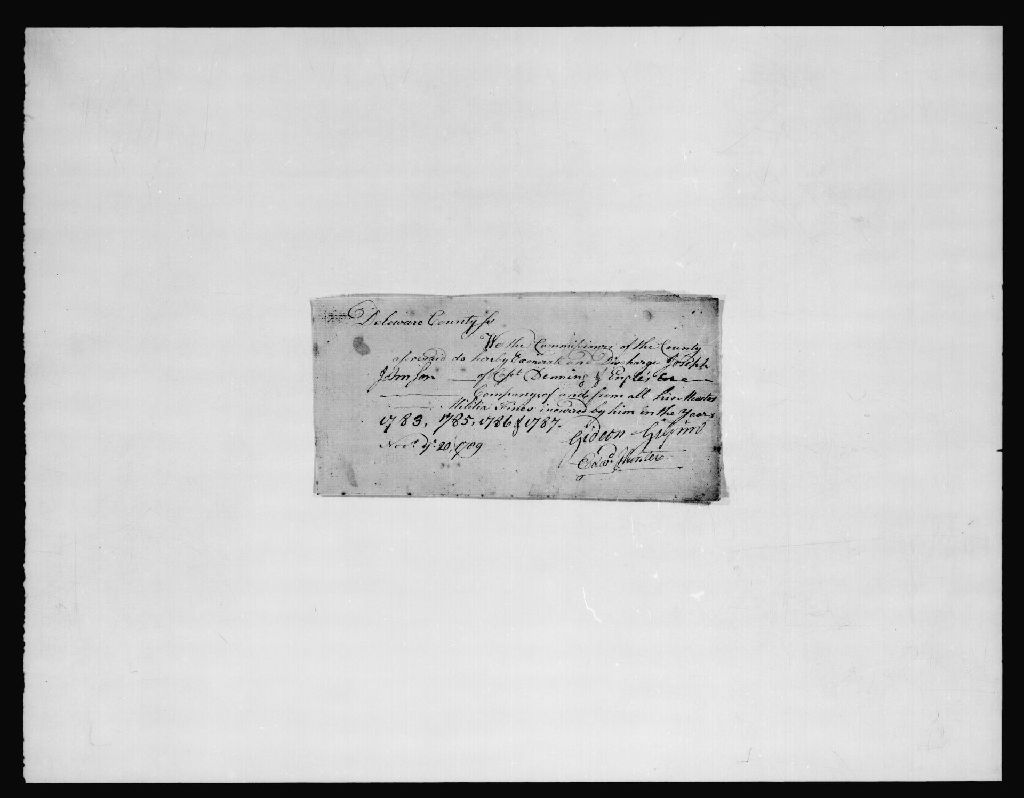 Deleware County ss
We the Commissioners of the County
aforesaid do hereby Exonerate and Discharge Joseph
Johnson of Capt Deming &
Company of and from all
Militia Fines incured by him in the Years
1783, 1785, 1786 & 1787.
Gideon Gilpin
Nov.r ye 20, 1789
Edwd Hunter